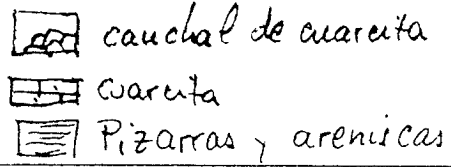 canchal de cuarcita
cuarcita
Pizarras y areniscas